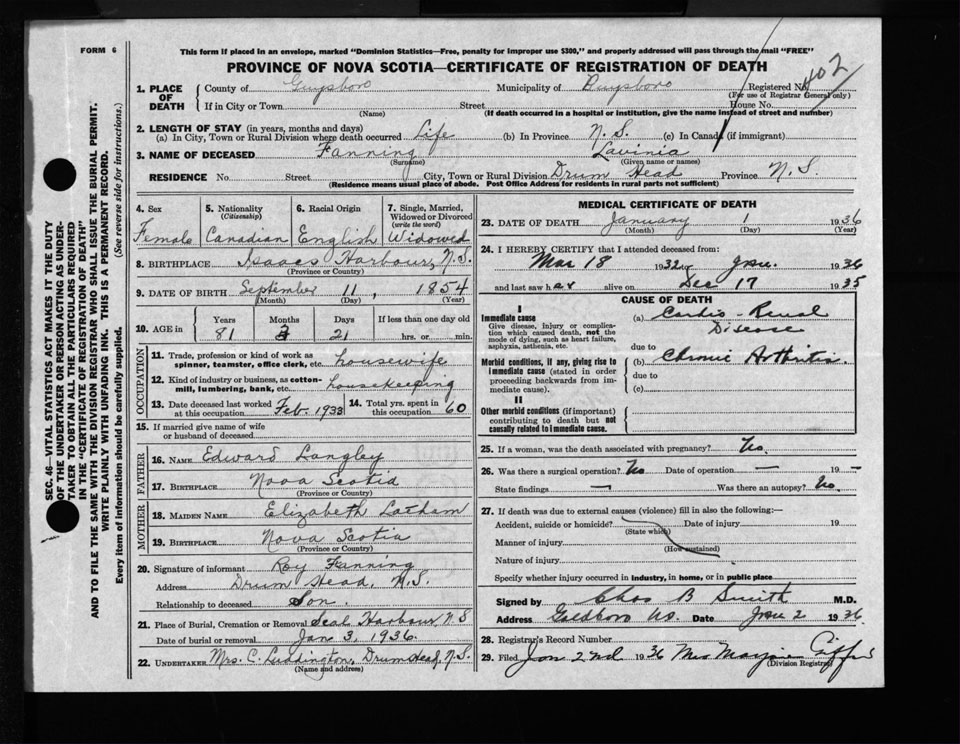 FORM 6
This form if placed in an envelope, marked "Dominion Statistics—Free, penalty for improper use $300," and properly addressed will pass through the mail "FREE"
PROVINCE OF NOVA SCOTIA—CERTIFICATE OF REGISTRATION OF DEATH
402
SEC. 46—VITAL STATISTICS ACT MAKES IT THE DUTY
OF THE UNDERTAKER OR PERSON ACTING AS UNDER-
TAKER TO OBTAIN ALL THE PARTICULARS REQUIRED
IN THE "CERTIFICATE OF REGISTRATION OF DEATH"
AND TO FILE THE SAME WITH THE DIVISION REGISTRAR WHO SHALL ISSUE THE BURIAL PERMIT.
WRITE PLAINLY WITH UNFADING INK. THIS IS A PERMANENT RECORD.
Every item of information should be carefully supplied. (See reverse side for instructions.)
1. PLACE OF DEATH County of Guysboro Municipality of Guysboro Registered No.
(For use of Registrar General only)
If in City or Town Street House No.
(Name) (If death occurred in a hospital or institution, give the name instead of street and number)
2. LENGTH OF STAY (in years, months and days)
(a) In City, Town or Rural Division where death occurred Life (b) In Province N.S. (c) In Canada (if immigrant)
3. NAME OF DECEASED Fanning Lavinia
(Surname) (Given name or names)
RESIDENCE No. Street City, Town or Rural Division Drum Head Province N.S.
(Residence means usual place of abode. Post Office Address for residents in rural parts not sufficient)
4. Sex Female
5. Nationality (Citizenship) Canadian
6. Racial Origin English
7. Single, Married, Widowed or Divorced (write the word) Widowed
8. BIRTHPLACE Isaacs Harbour, N.S.
(Province or Country)
9. DATE OF BIRTH September 11, 1854
(Month) (Day) (Year)
10. AGE in Years Months Days If less than one day old
81 3 21 hrs. or min.
OCCUPATION
11. Trade, profession or kind of work as spinner, teamster, office clerk, etc. housewife
12. Kind of industry or business, as cotton-mill, lumbering, bank, etc. housekeeping
13. Date deceased last worked at this occupation Feb. 1933
14. Total yrs. spent in this occupation 60
15. If married give name of wife or husband of deceased
FATHER
16. NAME Edward Langley
17. BIRTHPLACE Nova Scotia
(Province or Country)
MOTHER
18. MAIDEN NAME Elizabeth Latham
19. BIRTHPLACE Nova Scotia
(Province or Country)
20. Signature of informant Roy Fanning
Address Drum Head, N.S.
Relationship to deceased Son.
21. Place of Burial, Cremation or Removal Seal Harbour, N.S
Date of burial or removal Jan 3, 1936.
22. UNDERTAKER Mrs. C. Luddington, Drumhead, N.S.
(Name and address)
MEDICAL CERTIFICATE OF DEATH
23. DATE OF DEATH January 1 1936
(Month) (Day) (Year)
24. I HEREBY CERTIFY that I attended deceased from:
Mar 18 1932 to Jan. 1936
and last saw her alive on Dec 17 1935
CAUSE OF DEATH
I
Immediate cause
Give disease, injury or complication which caused death, not the mode of dying, such as heart failure, asphyxia, asthenia, etc.
(a) Cardio-Renal Disease
due to
Morbid conditions, if any, giving rise to immediate cause (stated in order proceeding backwards from immediate cause).
(b) Chronic Arthritis.
due to
(c)
II
Other morbid conditions (if important) contributing to death but not causally related to immediate cause.
25. If a woman, was the death associated with pregnancy? No.
26. Was there a surgical operation? No Date of operation — 19 -
State findings — Was there an autopsy? No.
27. If death was due to external causes (violence) fill in also the following:—
Accident, suicide or homicide? Date of injury 19
(State which)
Manner of injury
(How sustained)
Nature of injury
Specify whether injury occurred in industry, in home, or in public place
Signed by Chas B Smith M.D.
Address Goldboro NS. Date Jan 2 1936
28. Registrar's Record Number
29. Filed Jan 2nd 1936 Mrs Marjorie
(Division Registrar)